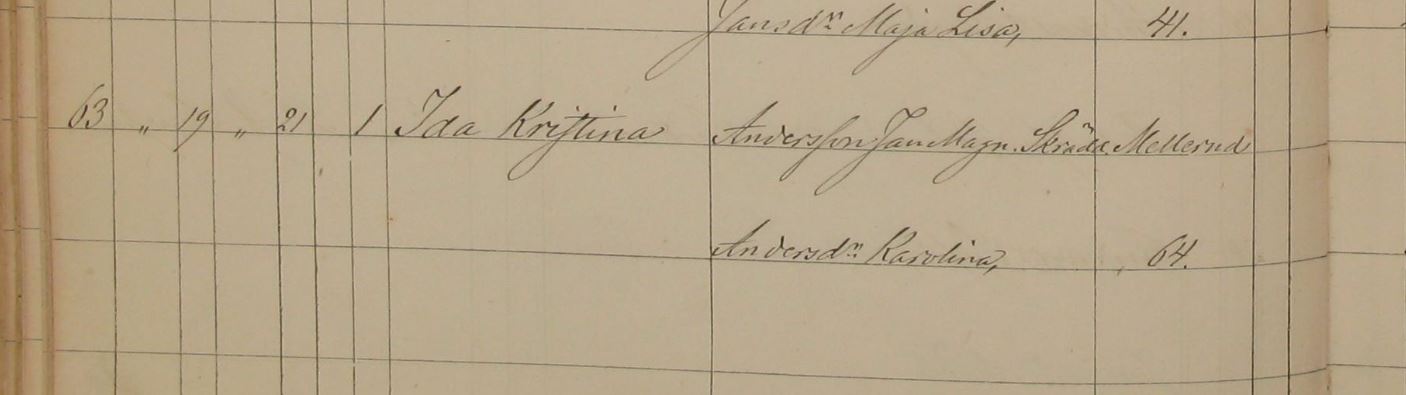 Jansdr. Maja Lisa, 41.
63 " 19 " 21 1 Ida Kristina Andersson Jan Magn. Skrädd. Mellerud
Andersdr. Karolina, 64.